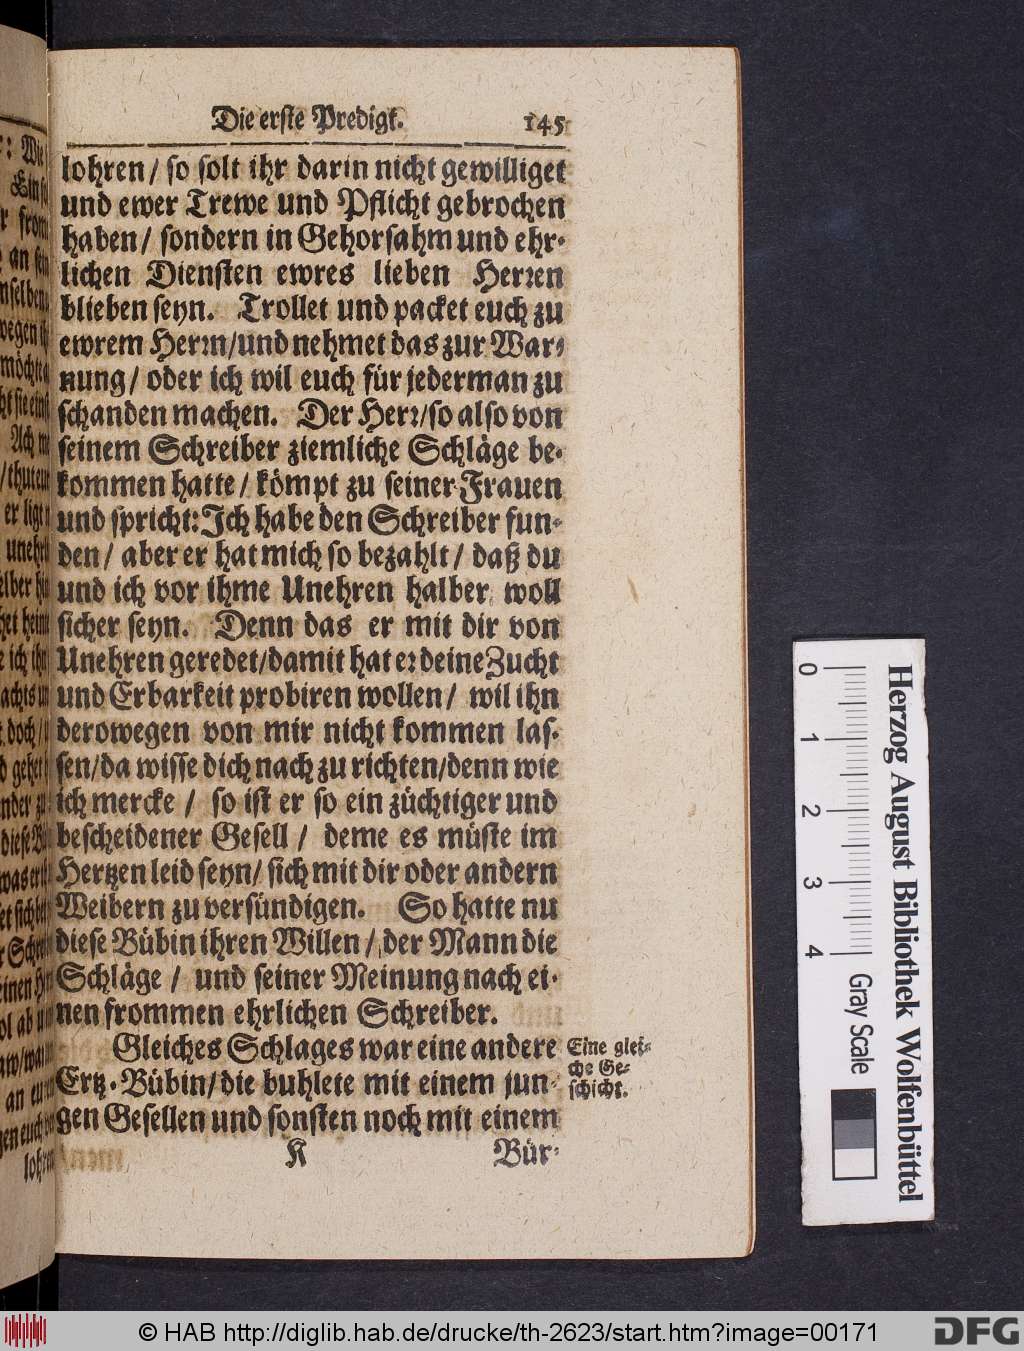 Die erste Predigt. 145
lohren / so solt ihr darin nicht gewilliget
und ewer Trewe und Pflicht gebrochen
haben / sondern in Gehorsahm und ehr-
lichen Diensten ewres lieben Herren
blieben seyn. Trollet und packet euch zu
ewrem Herrn/und nehmet das zur War-
nung / oder ich wil euch für jederman zu
schanden machen. Der Herr/so also von
seinem Schreiber ziemliche Schläge be-
kommen hatte / kömpt zu seiner Frauen
und spricht: Ich habe den Schreiber fun-
den / aber er hat mich so bezahlt / daß du
und ich vor ihme Unehren halber woll
sicher seyn. Denn das er mit dir von
Unehren geredet/damit hat er deine Zucht
und Erbarkeit probiren wollen / wil ihn
derowegen von mir nicht kommen las-
sen/da wisse dich nach zu richten/denn wie
ich mercke / so ist er so ein züchtiger und
bescheidener Gesell / deme es müste im
Hertzen leid seyn/ sich mit dir oder andern
Weibern zu versündigen. So hatte nu
diese Bübin ihren Willen / der Mann die
Schläge / und seiner Meinung nach ei-
nen frommen ehrlichen Schreiber.
Gleiches Schlages war eine andere
Ertz-Bübin/die buhlete mit einem jun-
gen Gesellen und sonsten noch mit einem
K Bür-
Eine glei-
che Ge-
schicht.
0 1 2 3 4 Gray Scale
Herzog August Bibliothek Wolfenbüttel
© HAB http://diglib.hab.de/drucke/th-2623/start.htm?image=00171
DFG